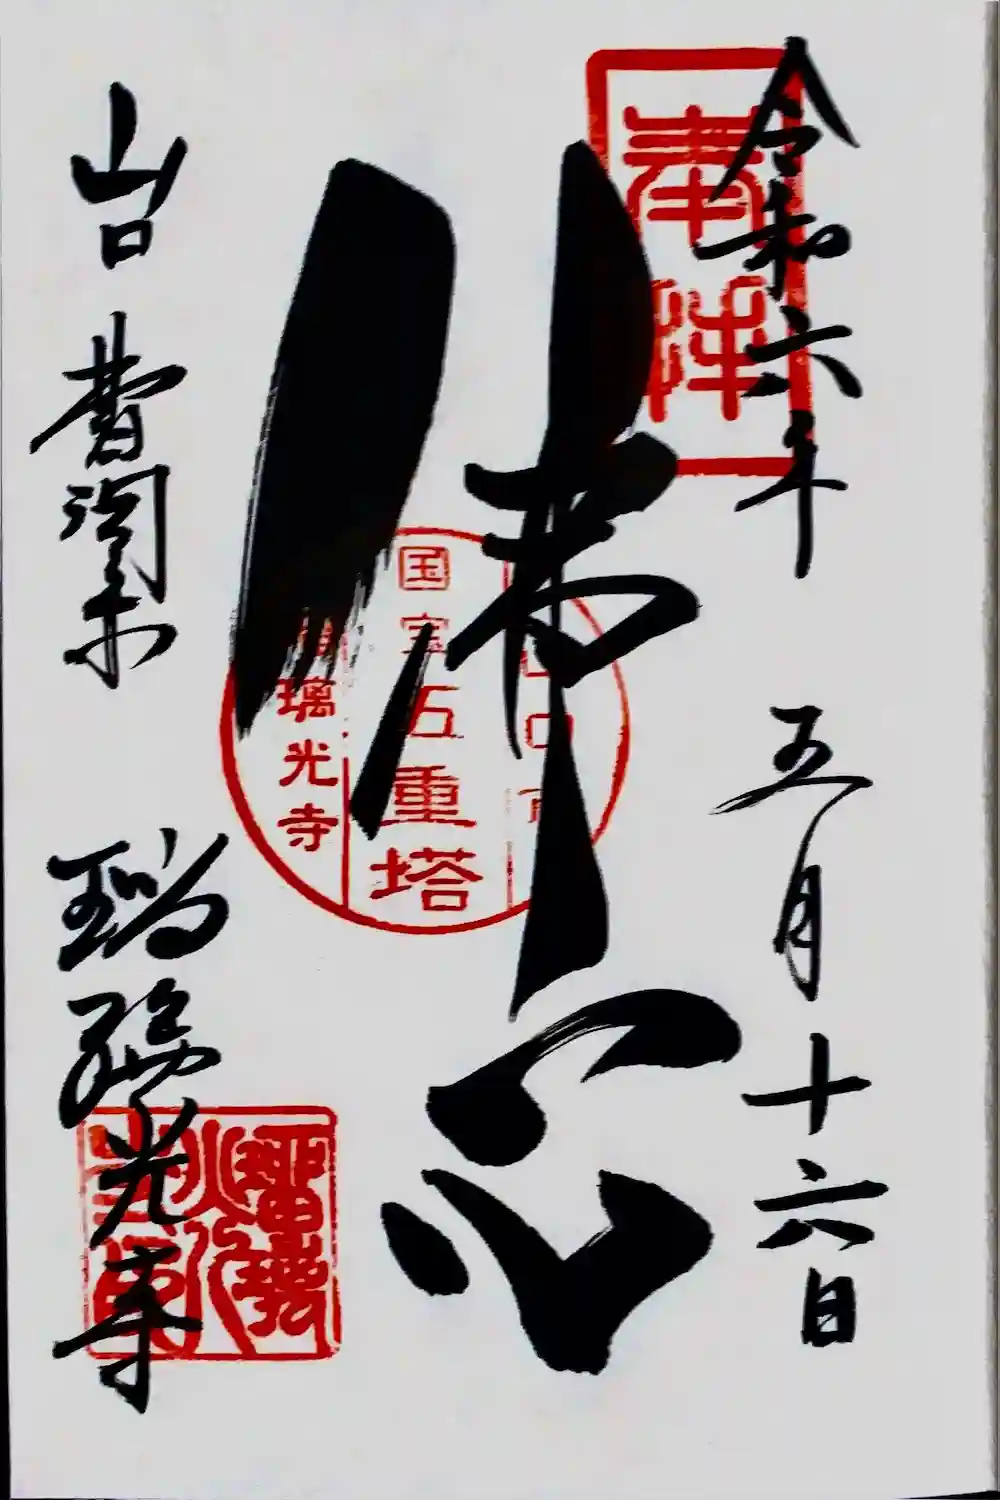 奉拝
令和六年 五月十六日
佛心
山口市
国宝五重塔
瑠璃光寺
山口 曹洞宗 瑠璃光寺